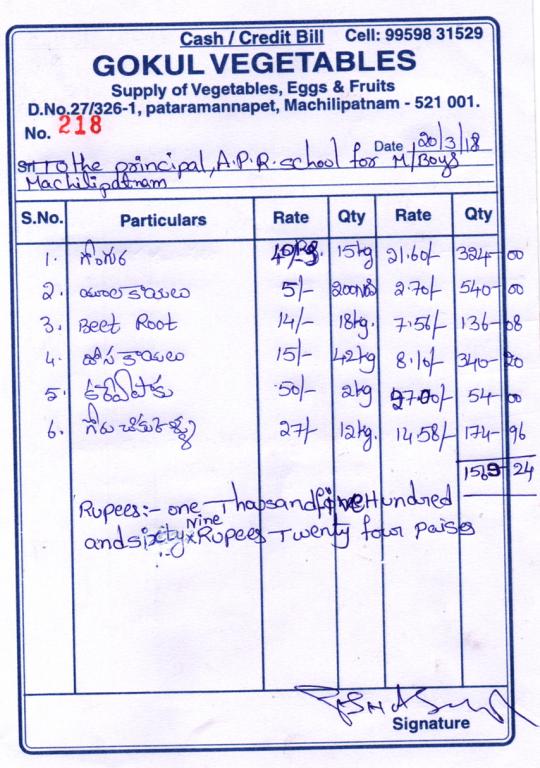 Cash / Credit Bill Cell: 99598 31529
GOKUL VEGETABLES
Supply of Vegetables, Eggs & Fruits
D.No.27/326-1, pataramannapet, Machilipatnam - 521 001.
No. 218
Date 20/3/18
To the principal, A.P.R. school for M/Boys
Machilipatnam
S.No. Particulars Rate Qty Rate Qty
1. గోంగూర 15kg 21.60/- 324-00
2. 5/- 200 2.70/- 540-00
3. Beet Root 14/- 18kg. 7.56/- 136-08
4. దోసకాయలు 15/- 42kg 8.10/- 340-20
5. కరివేపాకు 50/- 2kg 27.00/- 54-00
6. గోరుచిక్కుళ్ళు 27/- 12kg. 14.58/- 174-96
1569-24
Rupees:- one Thousand five Hundred
and sixty Nine Rupees Twenty four paises
Signature